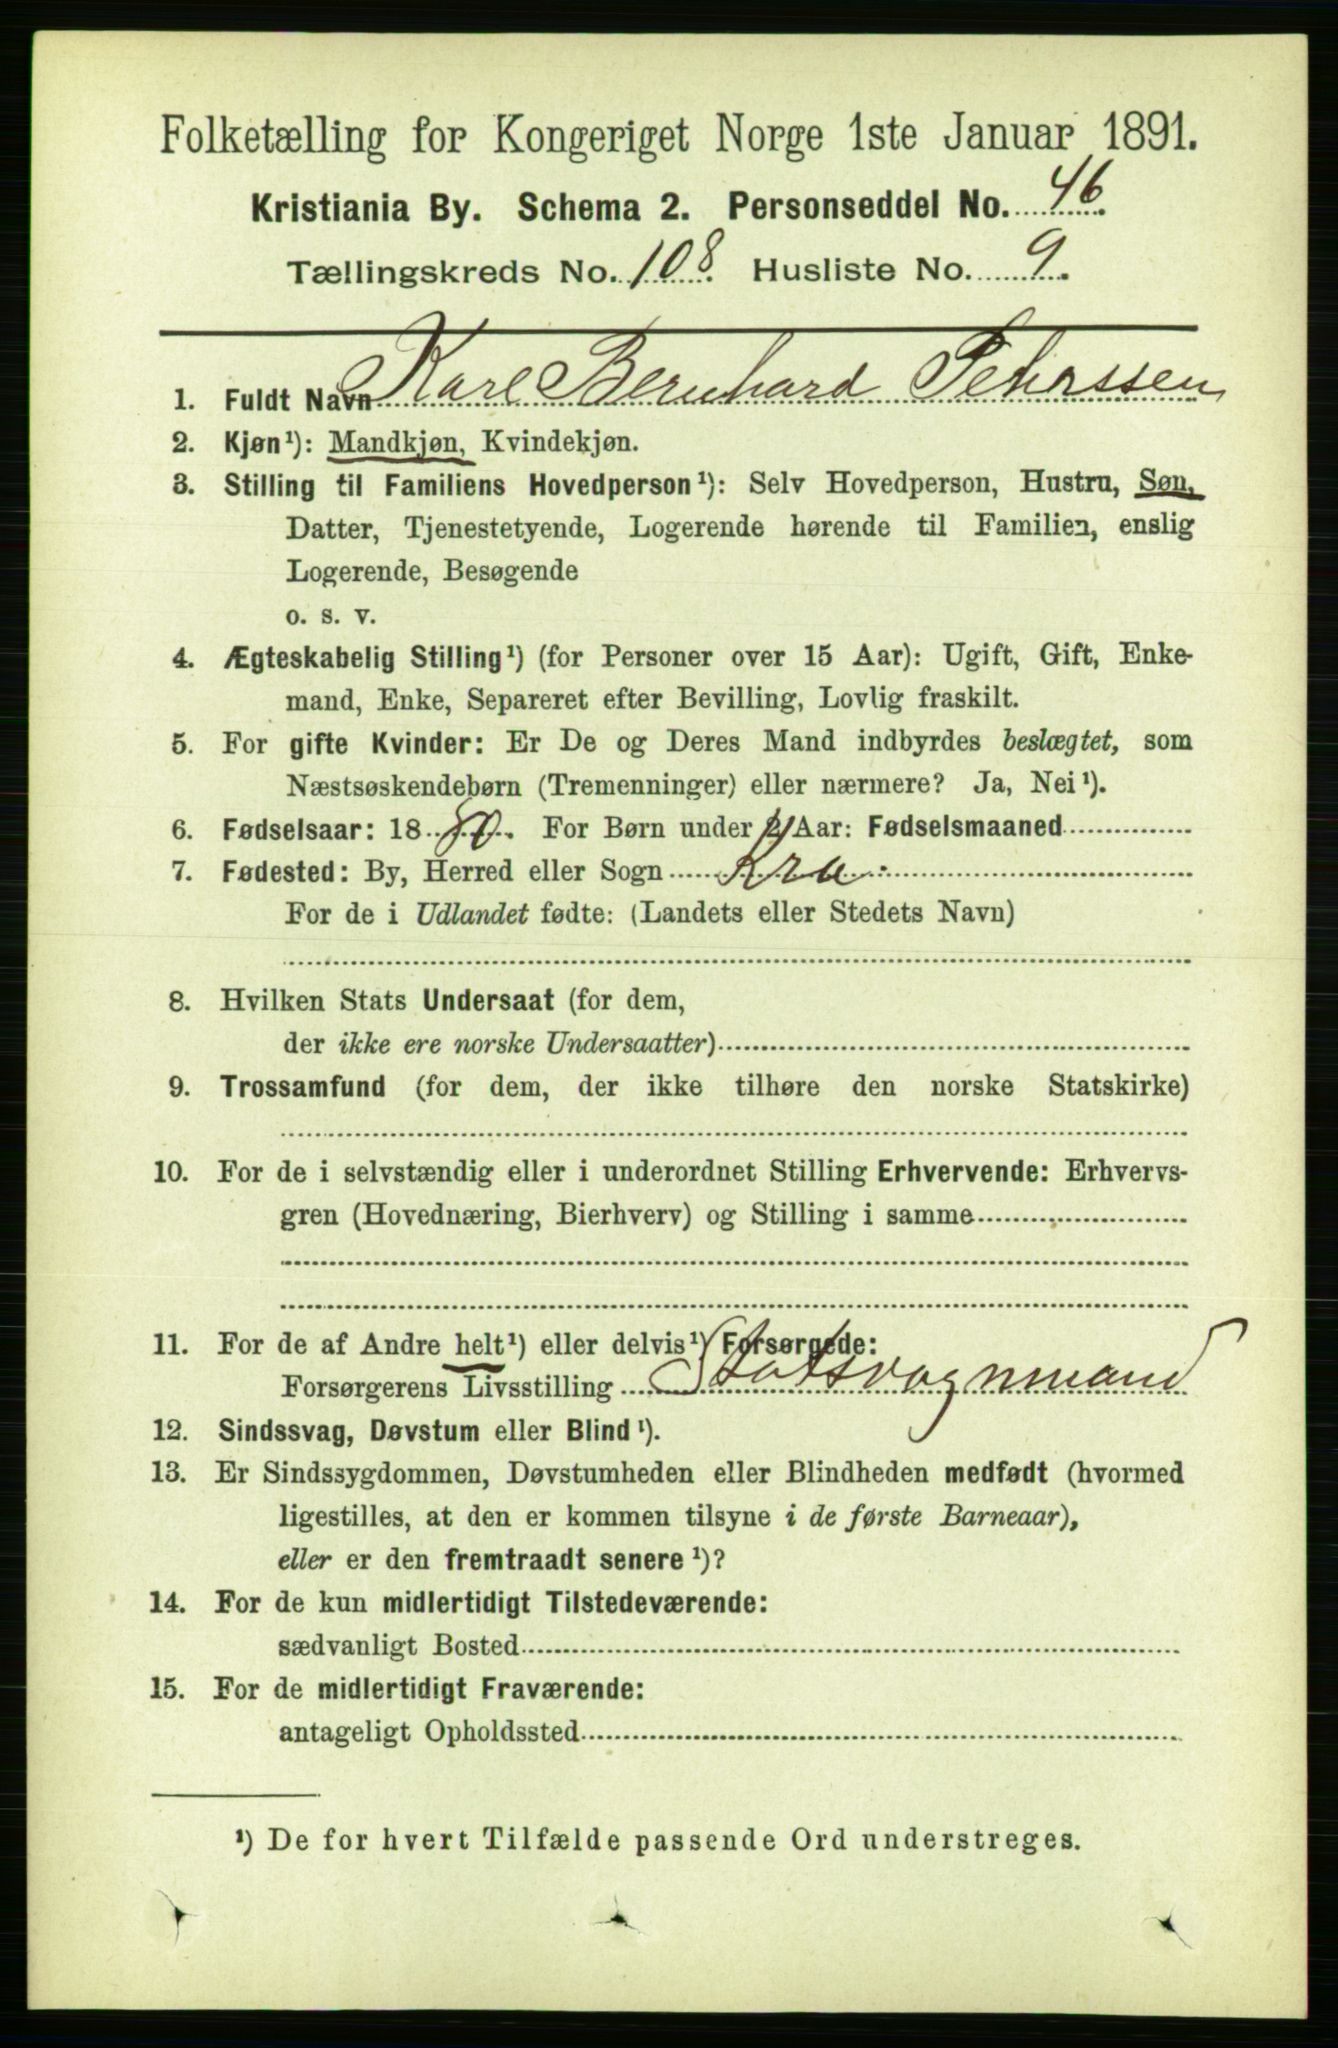 Folketælling for Kongeriget Norge 1ste Januar 1891.
Kristiania By. Schema 2. Personseddel No. 46.
Tællingskreds No. 108. Husliste No. 9.
1. Fuldt Navn Karl Bernhard
2. Kjøn¹): Mandkjøn, Kvindekjøn.
3. Stilling til Familiens Hovedperson¹): Selv Hovedperson, Hustru, Søn,
Datter, Tjenestetyende, Logerende hørende til Familien, enslig
Logerende, Besøgende
o. s. v.
4. Ægteskabelig Stilling¹) (for Personer over 15 Aar): Ugift, Gift, Enke-
mand, Enke, Separeret efter Bevilling, Lovlig fraskilt.
5. For gifte Kvinder: Er De og Deres Mand indbyrdes beslægtet, som
Næstsøskendebørn (Tremenninger) eller nærmere? Ja, Nei¹).
6. Fødselsaar: 1880. For Børn under 2 Aar: Fødselsmaaned
7. Fødested: By, Herred eller Sogn Kra.
For de i Udlandet fødte: (Landets eller Stedets Navn)
8. Hvilken Stats Undersaat (for dem,
der ikke ere norske Undersaatter)
9. Trossamfund (for dem, der ikke tilhøre den norske Statskirke)
10. For de i selvstændig eller i underordnet Stilling Erhvervende: Erhvervs-
gren (Hovednæring, Bierhverv) og Stilling i samme
11. For de af Andre helt¹) eller delvis¹) Forsørgede:
Forsørgerens Livsstilling Statsvognmand
12. Sindssvag, Døvstum eller Blind¹).
13. Er Sindssygdommen, Døvstumheden eller Blindheden medfødt (hvormed
ligestilles, at den er kommen tilsyne i de første Barneaar),
eller er den fremtraadt senere¹)?
14. For de kun midlertidigt Tilstedeværende:
sædvanligt Bosted
15. For de midlertidigt Fraværende:
antageligt Opholdssted
¹) De for hvert Tilfælde passende Ord understreges.